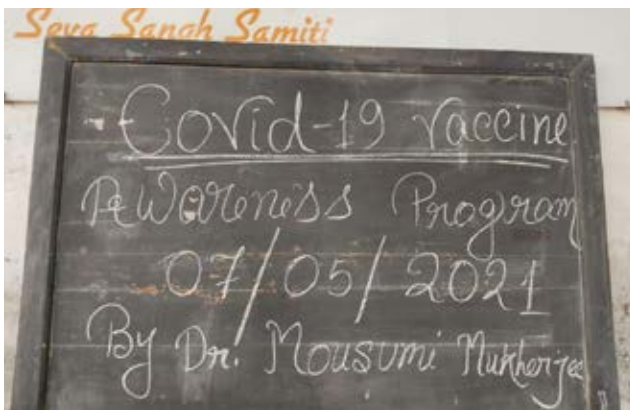 Seva Sangh Samiti
Covid-19 vaccine
Awareness Program
07/05/2021
By Dr. Mousumi Mukherjee